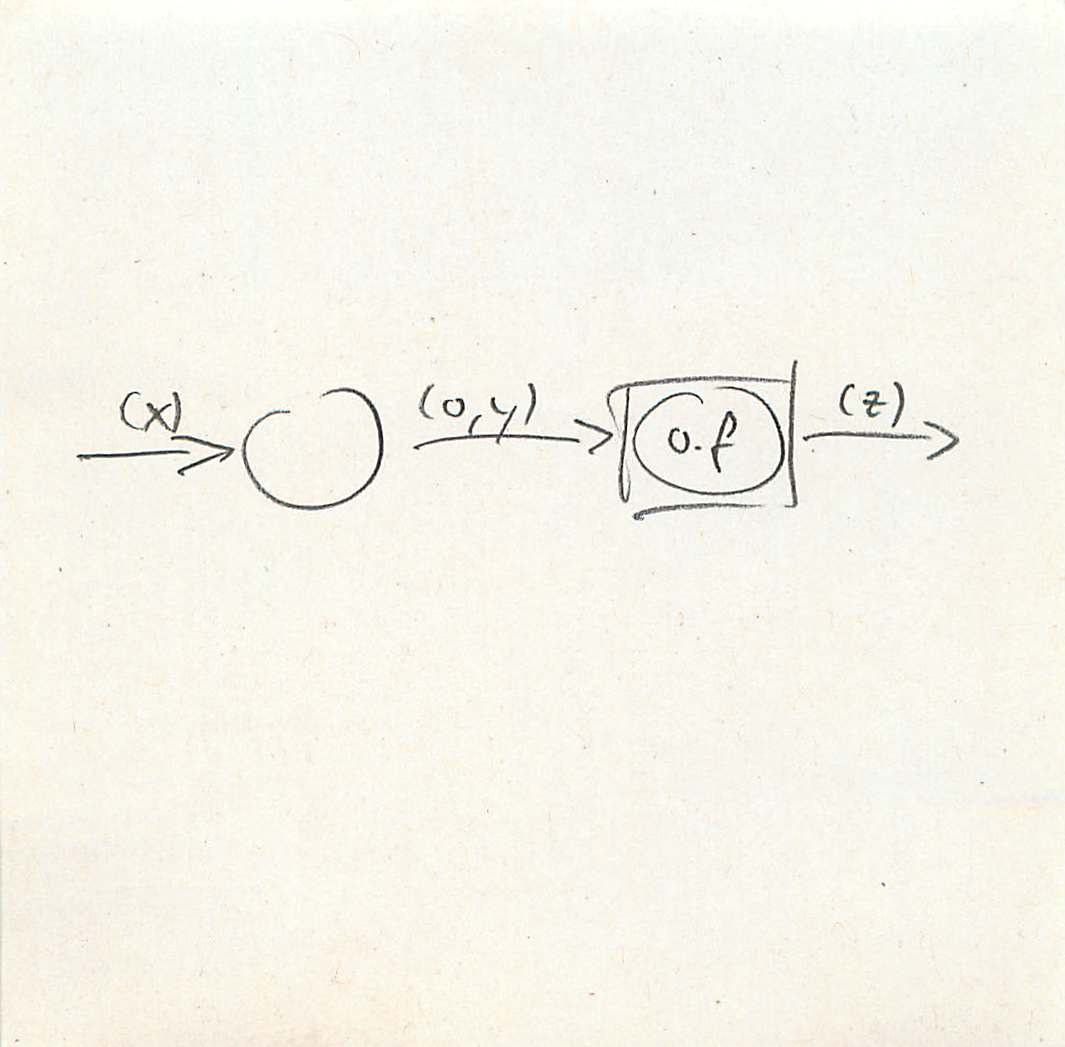 (x) (o,y) o.f (z)